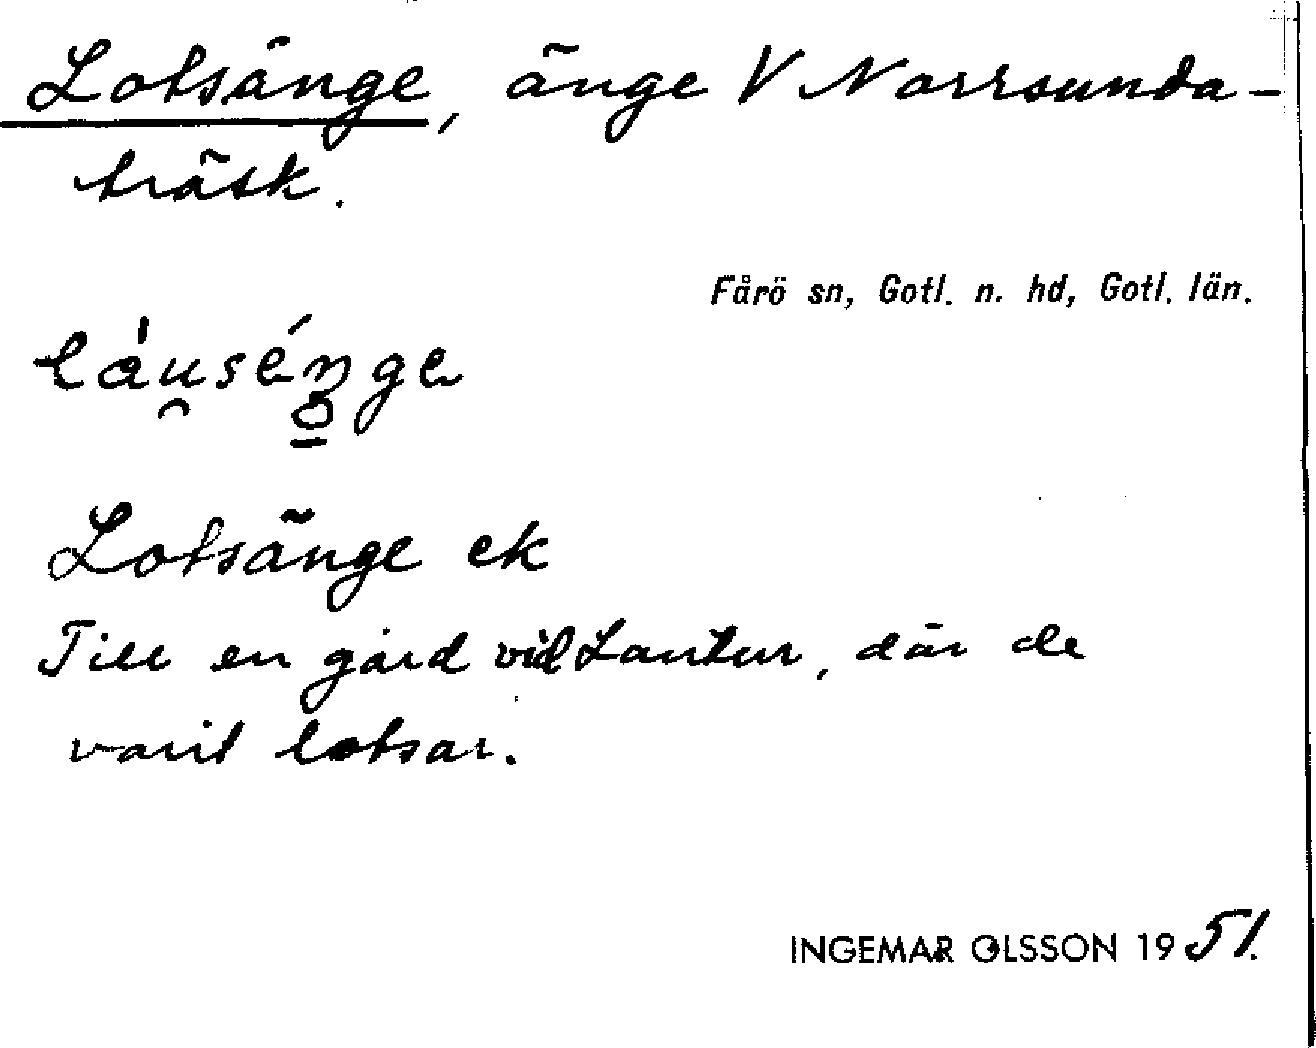 Lotsänge, änge V Norrsunda-
träsk.
Fårö sn, Gotl. n. hd, Gotl. län.
Lotsänge ek
Till en gård vid Lantur, där de
varit lotsar.
INGEMAR OLSSON 1951.